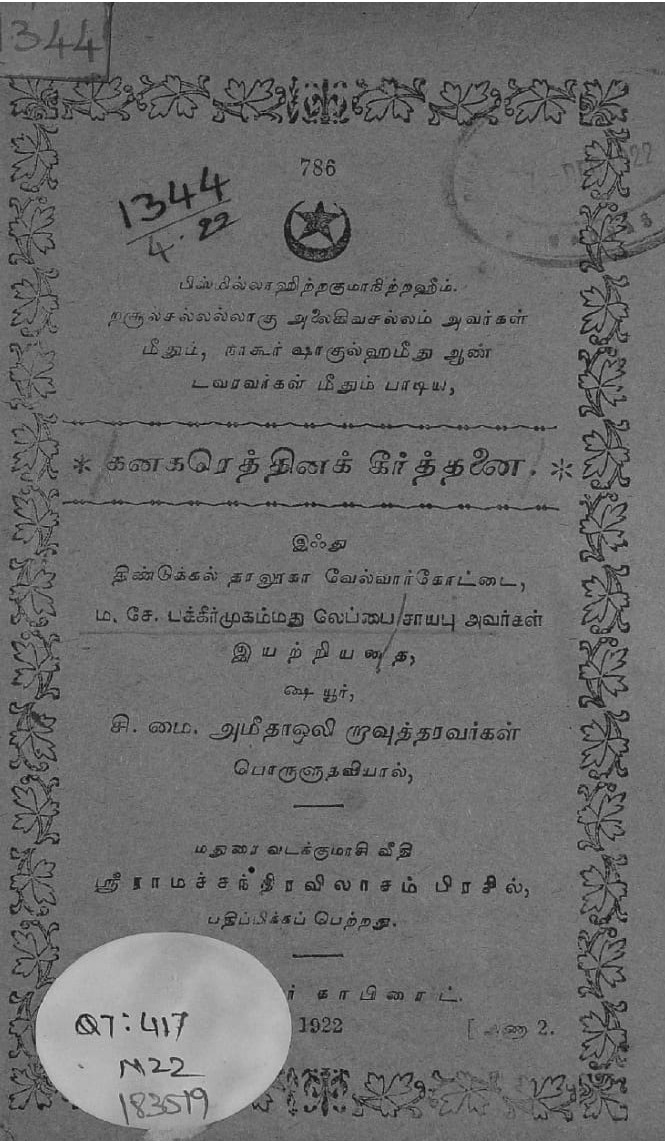 1344
786
1344
4.22
பிஸ்மில்லாஹிற்றகுமாநிற்றஹீம்.
றசூல்சல்லல்லாகு அலைகிவசல்லம் அவர்கள்
மீதும், நாகூர் ஷாகுல்ஹமீது ஆண்
டவரவர்கள் மீதும் பாடிய,
* கனகரெத்தினக் கீர்த்தனை. *
இஃது
திண்டுக்கல் தாலூகா வேல்வார்கோட்டை,
ம. சே. பக்கீர்முகம்மது லேப்பை சாயபு அவர்கள்
இயற்றியதை,
ஷை யூர்,
சி. மை. அமீதாஒலி றாவுத்தரவர்கள்
பொருளுதவியால்,
மதுரை வடக்குமாசி வீதி
ஸ்ரீ ராமச்சந்திரவிலாசம் பிரசில்,
பதிப்பிக்கப் பெற்றது.
காபிரைட்.
1922 [அணா 2.
Q7:417
M22
183519